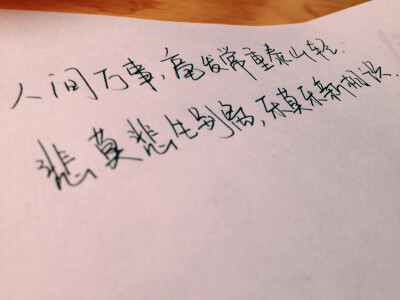 人间万事，毫发常重泰山轻.
悲莫悲生别离，乐莫乐新相识.